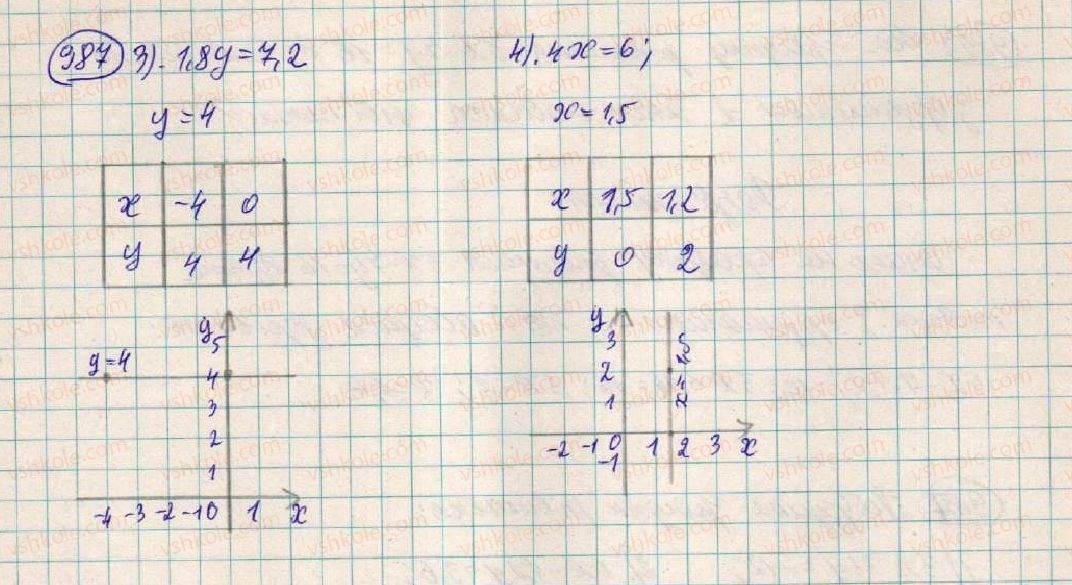 987 3). 1,8y = 7,2
y = 4
x -4 0
y 4 4
y
5
y = 4
4
3
2
1
-4 -3 -2 -1 0 1 x
4). 4x = 6;
x = 1,5
x 1,5 1,2
y 0 2
y
3
2
1
x = 1,5
-2 -1 0 1 2 3 x
-1
vshkole.com